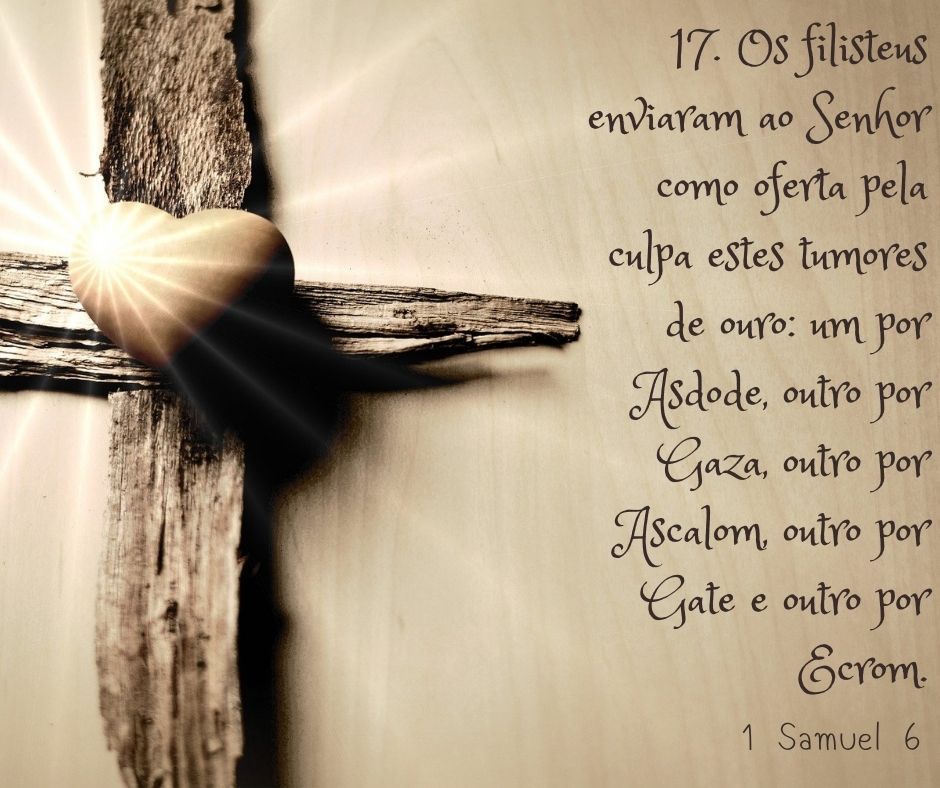 17. Os filisteus
enviaram ao Senhor
como oferta pela
culpa estes tumores
de ouro: um por
Asdode, outro por
Gaza, outro por
Ascalom, outro por
Gate e outro por
Ecrom.
1 Samuel 6